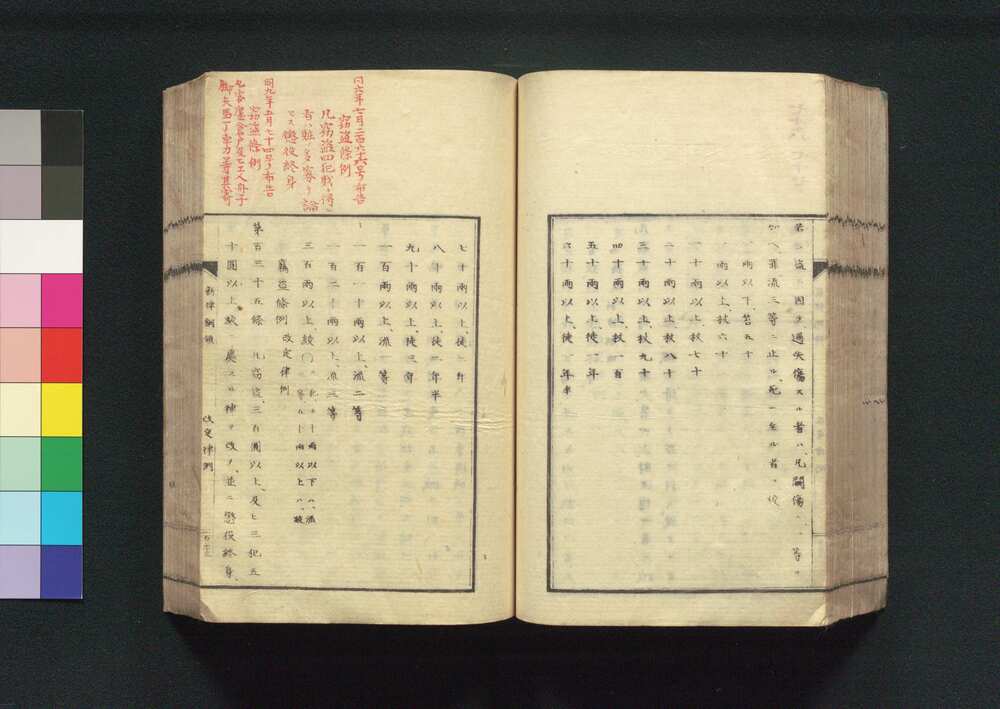 若シ盗ニ因テ過失傷スル者ハ、凡闘傷ニ 等ヲ
加ヘ罪流三等ニ止ル、死ニ至ル者ハ絞
一両以下笞五十
一両以上、杖六十
一十両以上、杖七十
二十両以上、杖八十
三十両以上、杖九十
四十両以上、杖一百
五十両以上、徒一年
六十両以上、徒一年半
七十両以上、徒二年
八十両以上、徒二年半
九十両以上、徒三年
一百両以上、流一等
一百一十両以上、流二等
一百二十両以上、流三等
三百両以上、絞
窃盗条例 改定律例
第百三十五条 凡窃盗、三百圓以上、及ヒ三犯五
十圓以上絞ニ処スルノ律ヲ改メ、並ニ懲役終身、
新律綱領 改定律例
同六年七月二百六十六号布告
窃盗條例
凡窃盗四犯
者ハ贓ノ多寡ヲ論
セス懲役終身
同九年五月七十四号布告
窃盗條例
脚夫馬丁車力等其寄